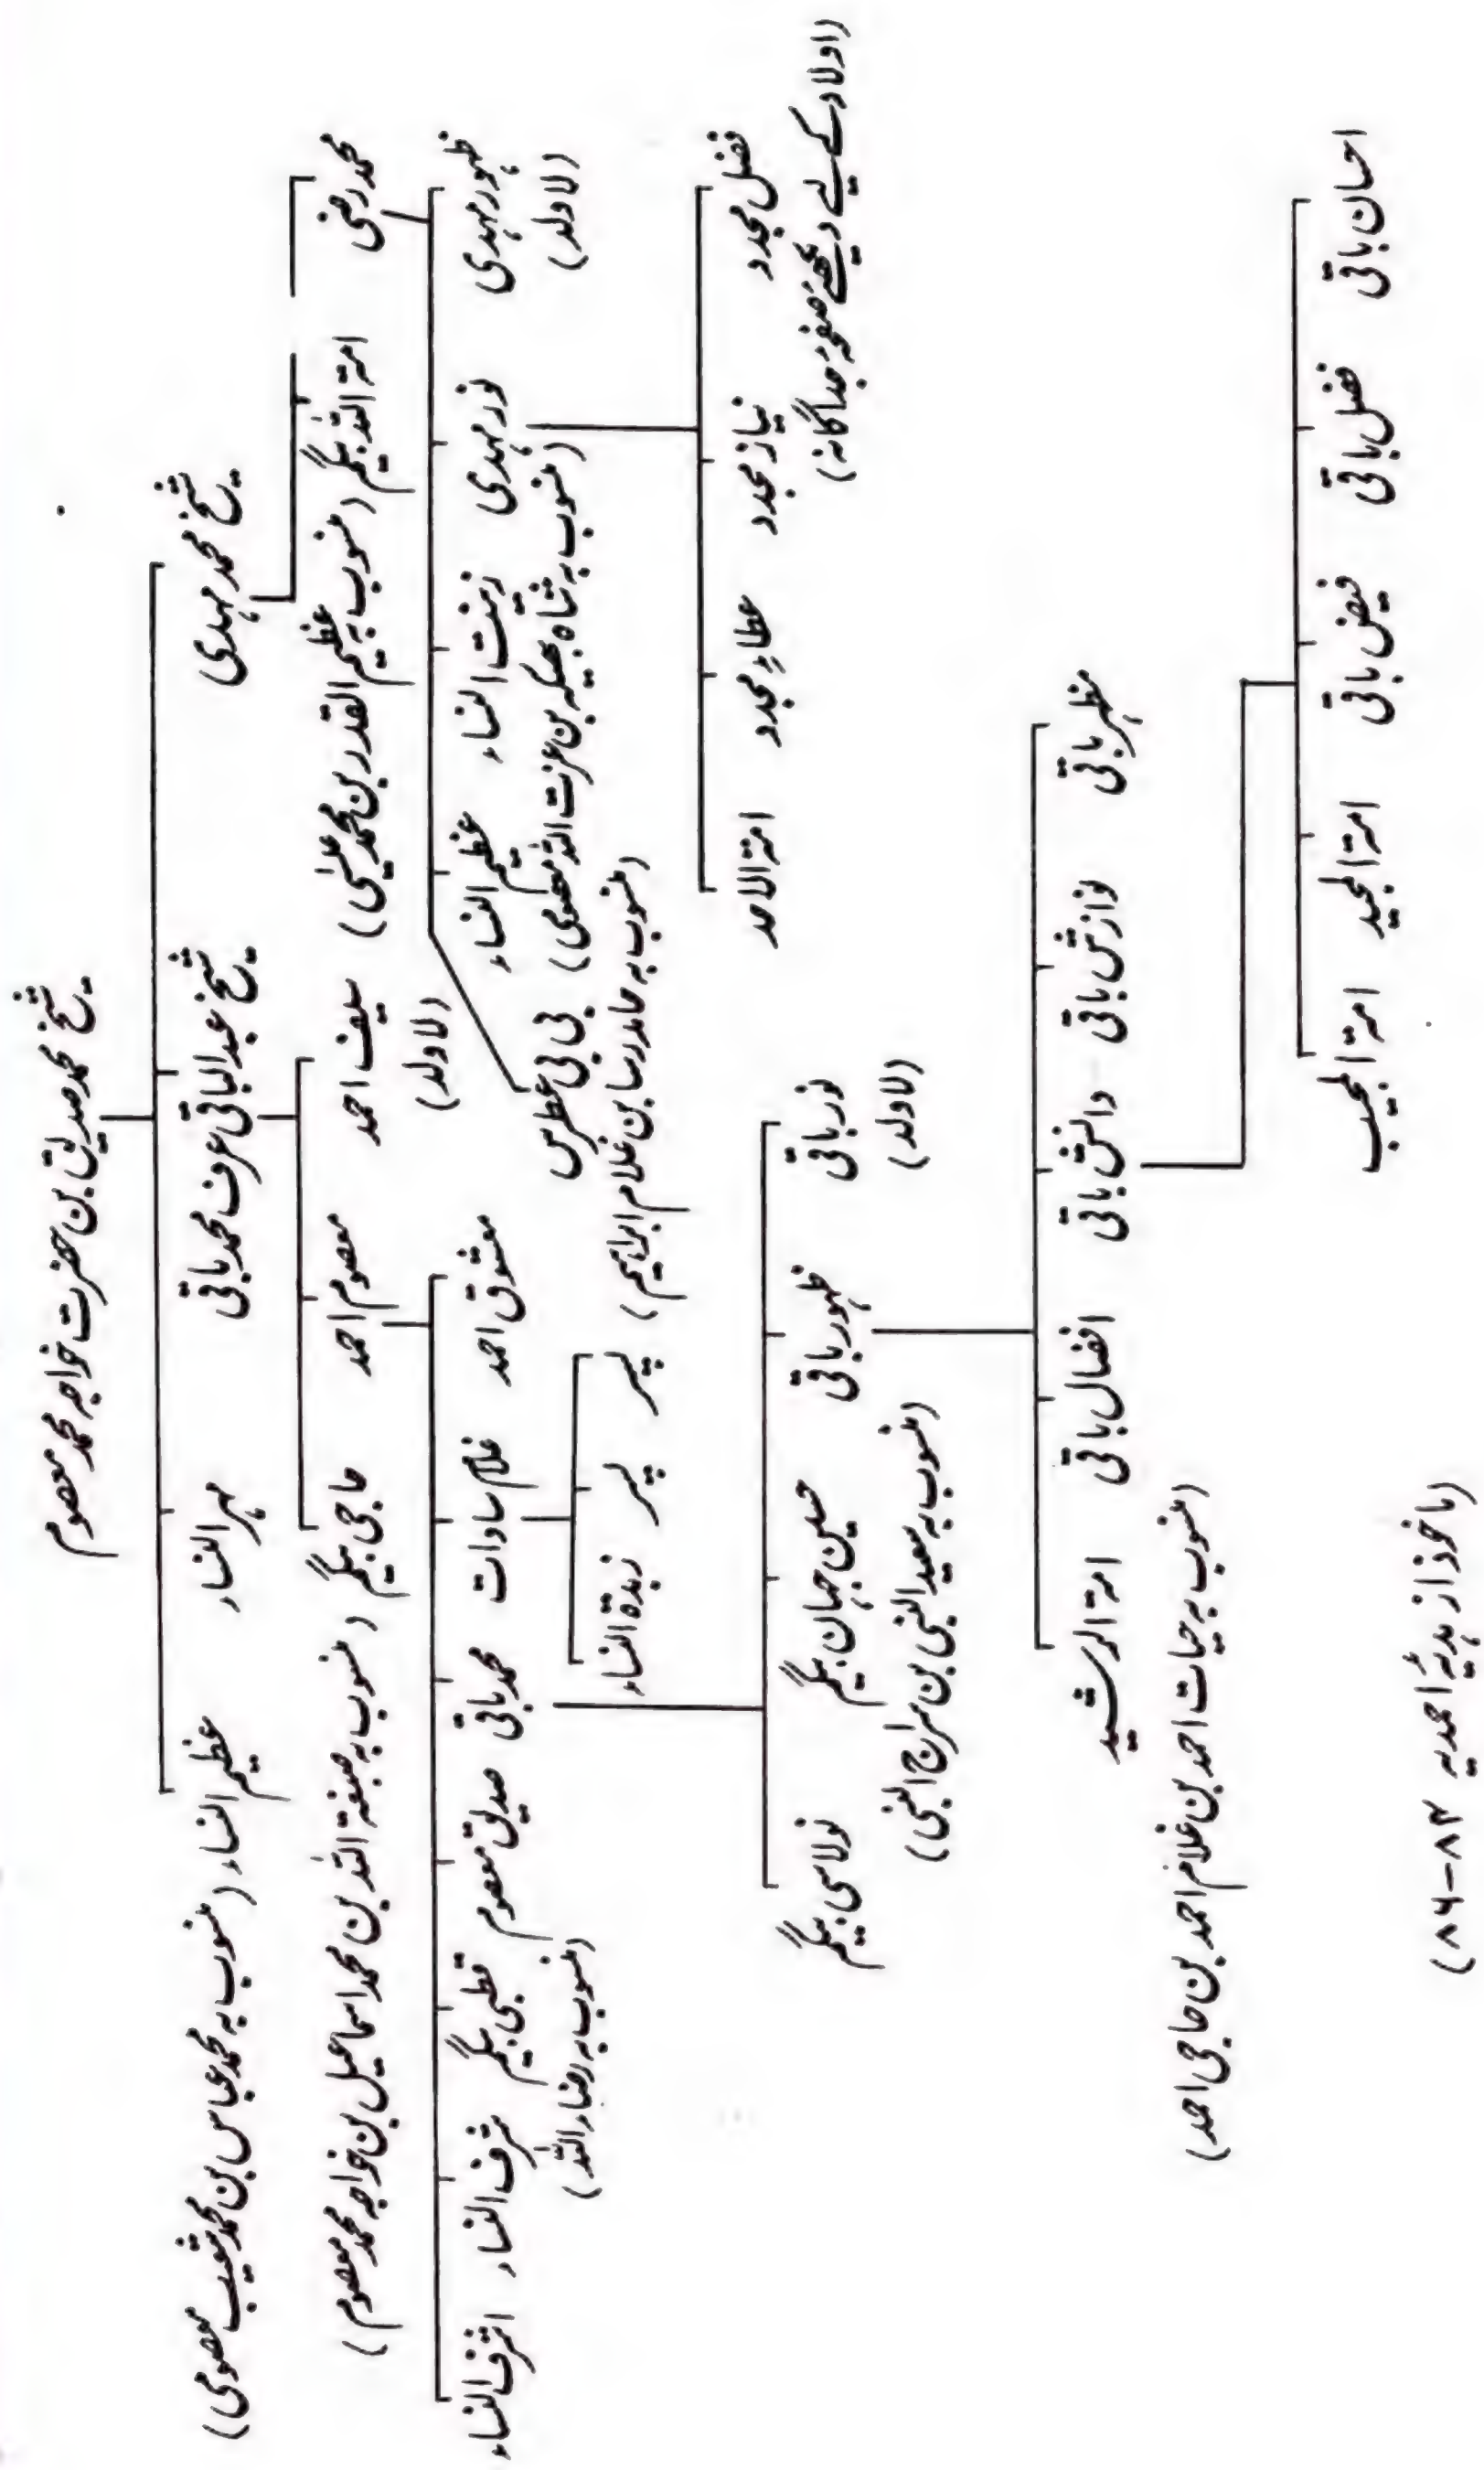 شیخ محمد صدیق بن حضرت خواجہ محمد معصوم
شیخ محمد مہدی
شیخ عبدالباقی عرف محمد باقی
مہر النساء
عظیم النساء (منسوب بہ محمد عباس بن محمد شعیب معصومی)
محمد رضی
امۃ اللہ بیگم (منسوب بہ عظیم القدر بن محمد عیسیٰ)
سیف احمد
(لاولد)
معصوم احمد
حاجی بیگم (منسوب بہ صبغۃ اللہ بن محمد اسماعیل بن خواجہ محمد معصوم)
ظہور مہدی
(لاولد)
نور مہدی
زینت النساء
(منسوب بہ شاہ بھیکہ بن عزت اللہ معصومی)
عظیم النساء
بی بی عطرس
(منسوب بہ حامد رسا بن غلام ابراہیم)
معشوق احمد
غلام سادات
محمد باقی
صدیق معصوم
قطبی بیگم
(منسوب بہ رضاء اللہ)
شرف النساء
اشرف النساء
پسر
پسر
زبدۃ النساء
فضل مجدد
نیاز مجدد
عطاء مجدد
امۃ الاحد
(اولاد کے لیے دیکھئے صفحہ جداگانہ)
نور باقی
(لاولد)
ظہور باقی
حسین جہان بیگم
(منسوب بہ سعید النبی بن سراج النبی)
نولاسی بیگم
مظہر باقی
نوازش باقی
دانش باقی
افضال باقی
امۃ الرشید
(منسوب بہ حیات احمد بن غلام احمد بن حاجی احمد)
احسان باقی
فضل باقی
فیض باقی
امۃ المجید
امۃ المجیب
(ماخوذ از ہدیۂ احمدیہ ۸۳-۸۶)